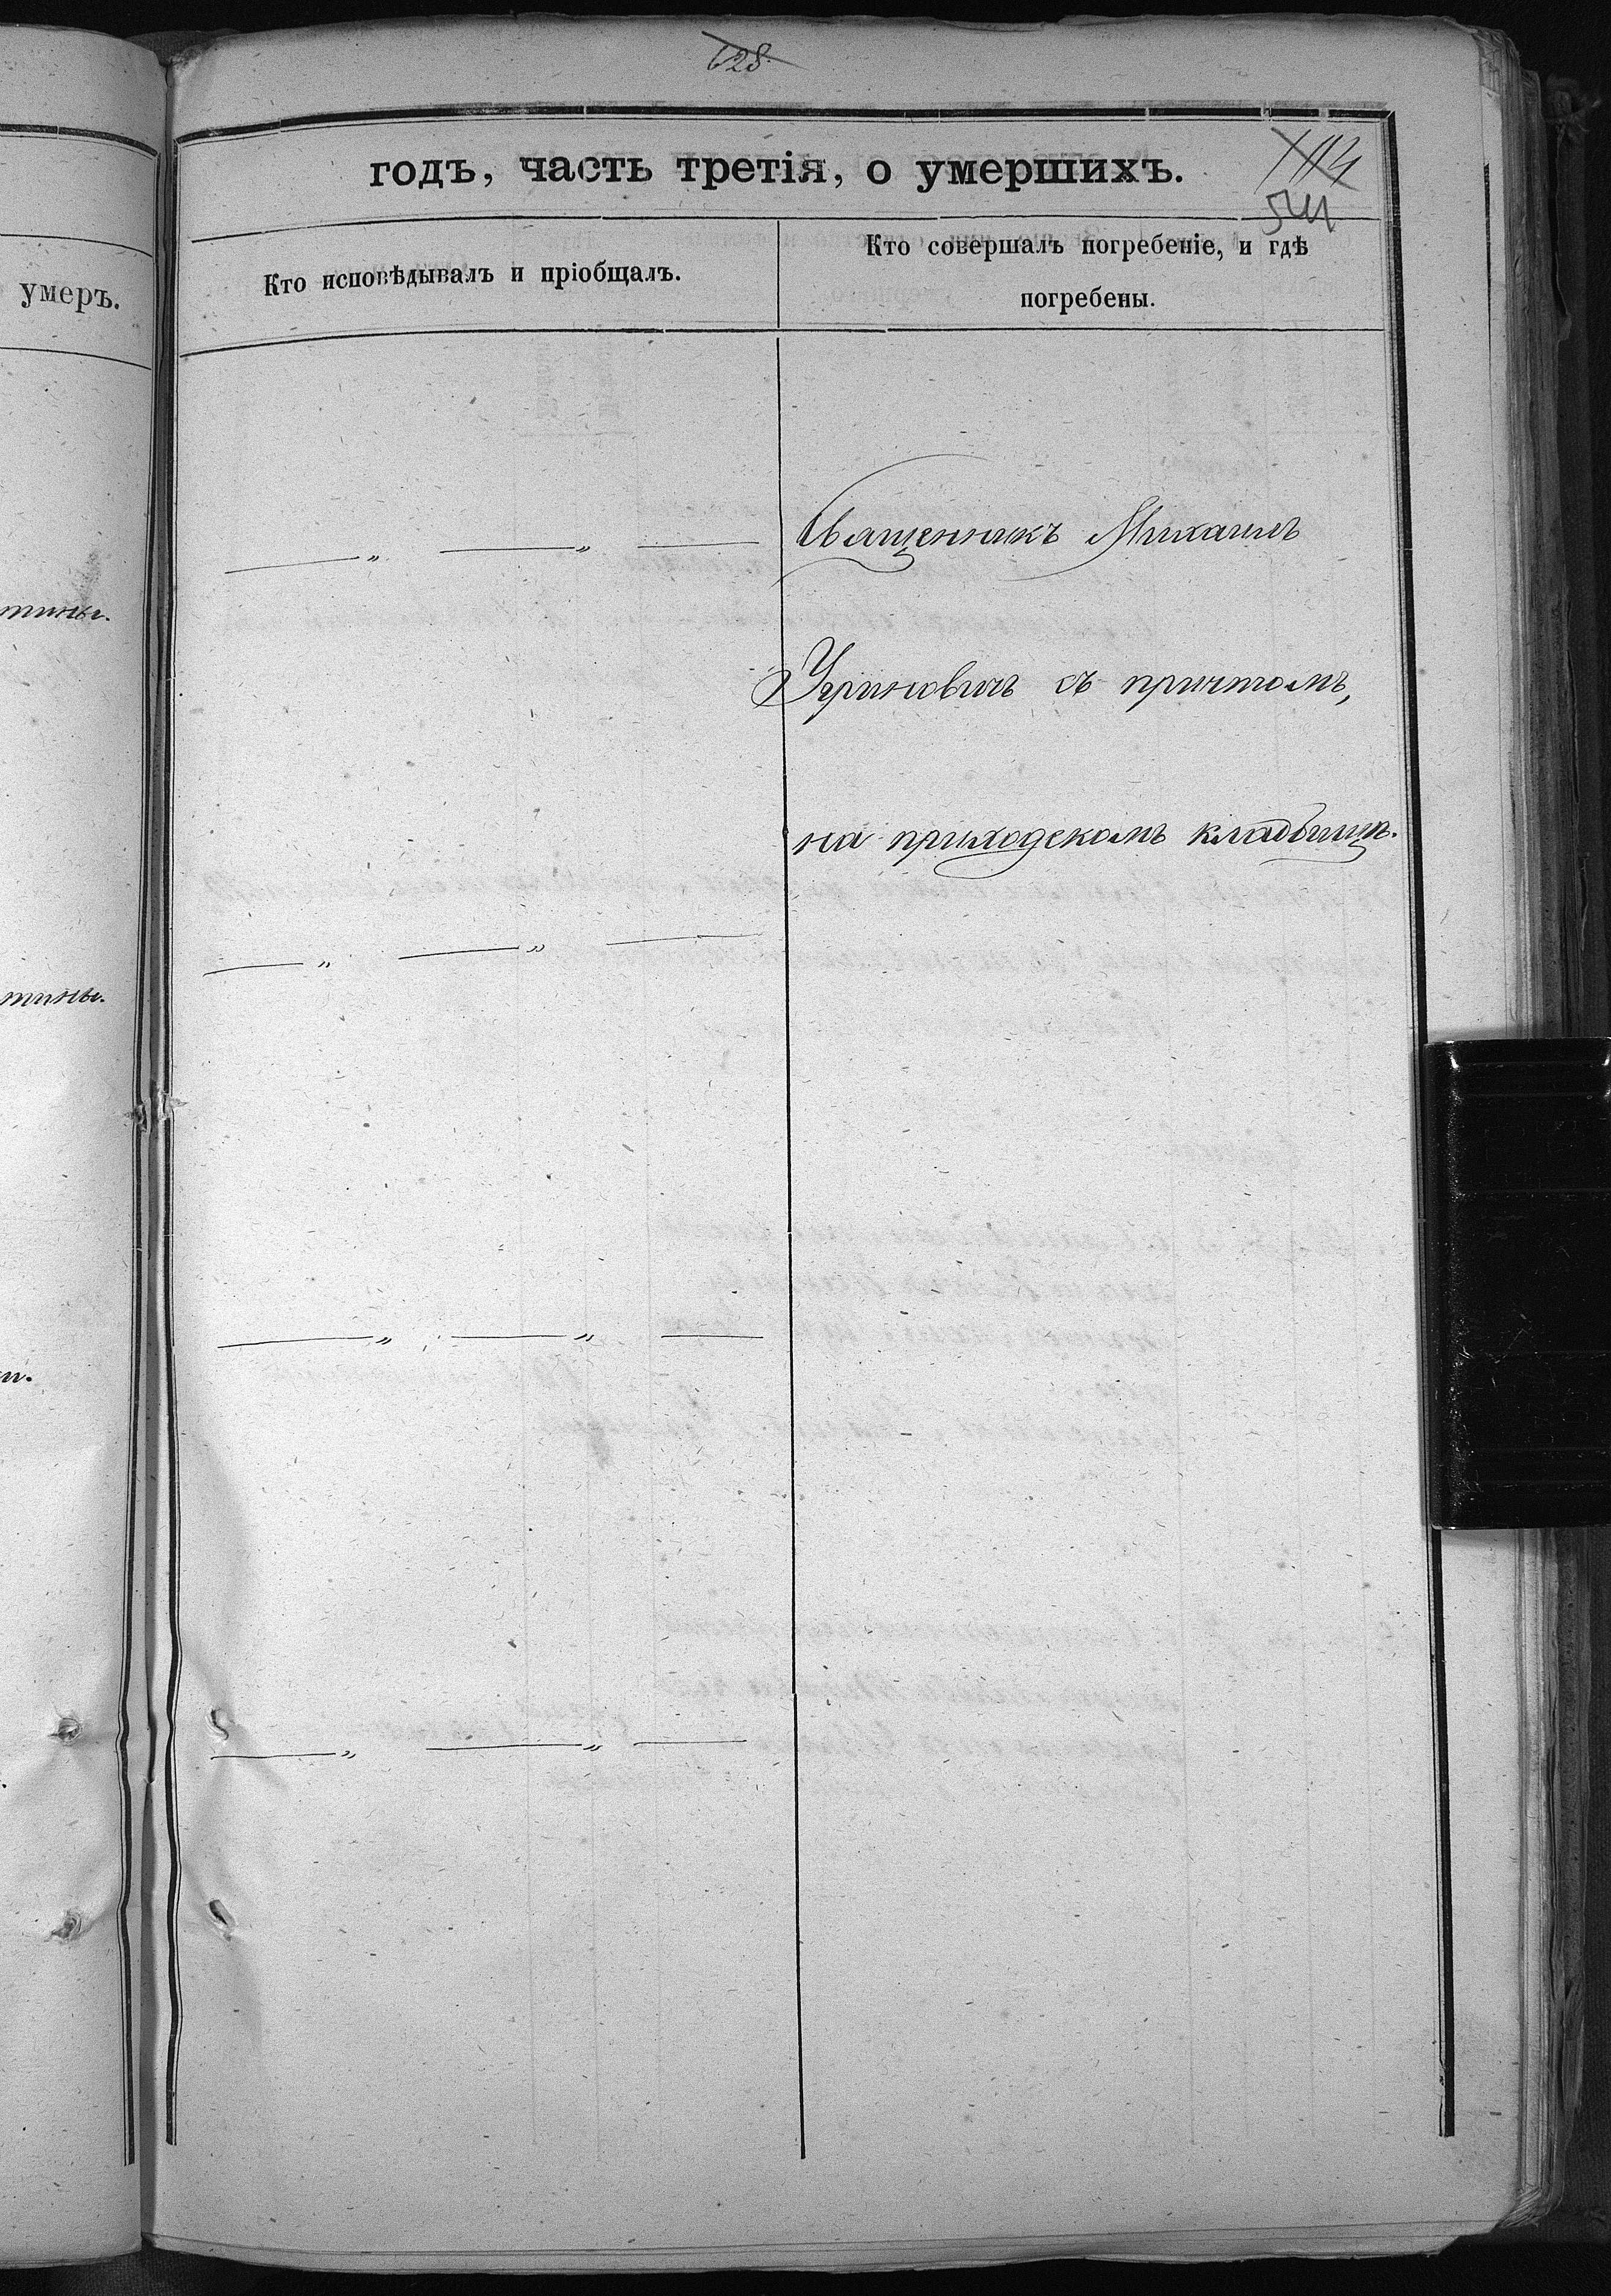 628
годъ, часть третія, о умершихъ.
541
умеръ.
Кто исповѣдывалъ и пріобщалъ.
Кто совершалъ погребеніе, и гдѣ
погребены.
— " — " —
Священникъ Михаилъ
Угриновичъ съ причтомъ,
на приходскомъ кладбищѣ.
— " — " —
— " — " —
— " — " —